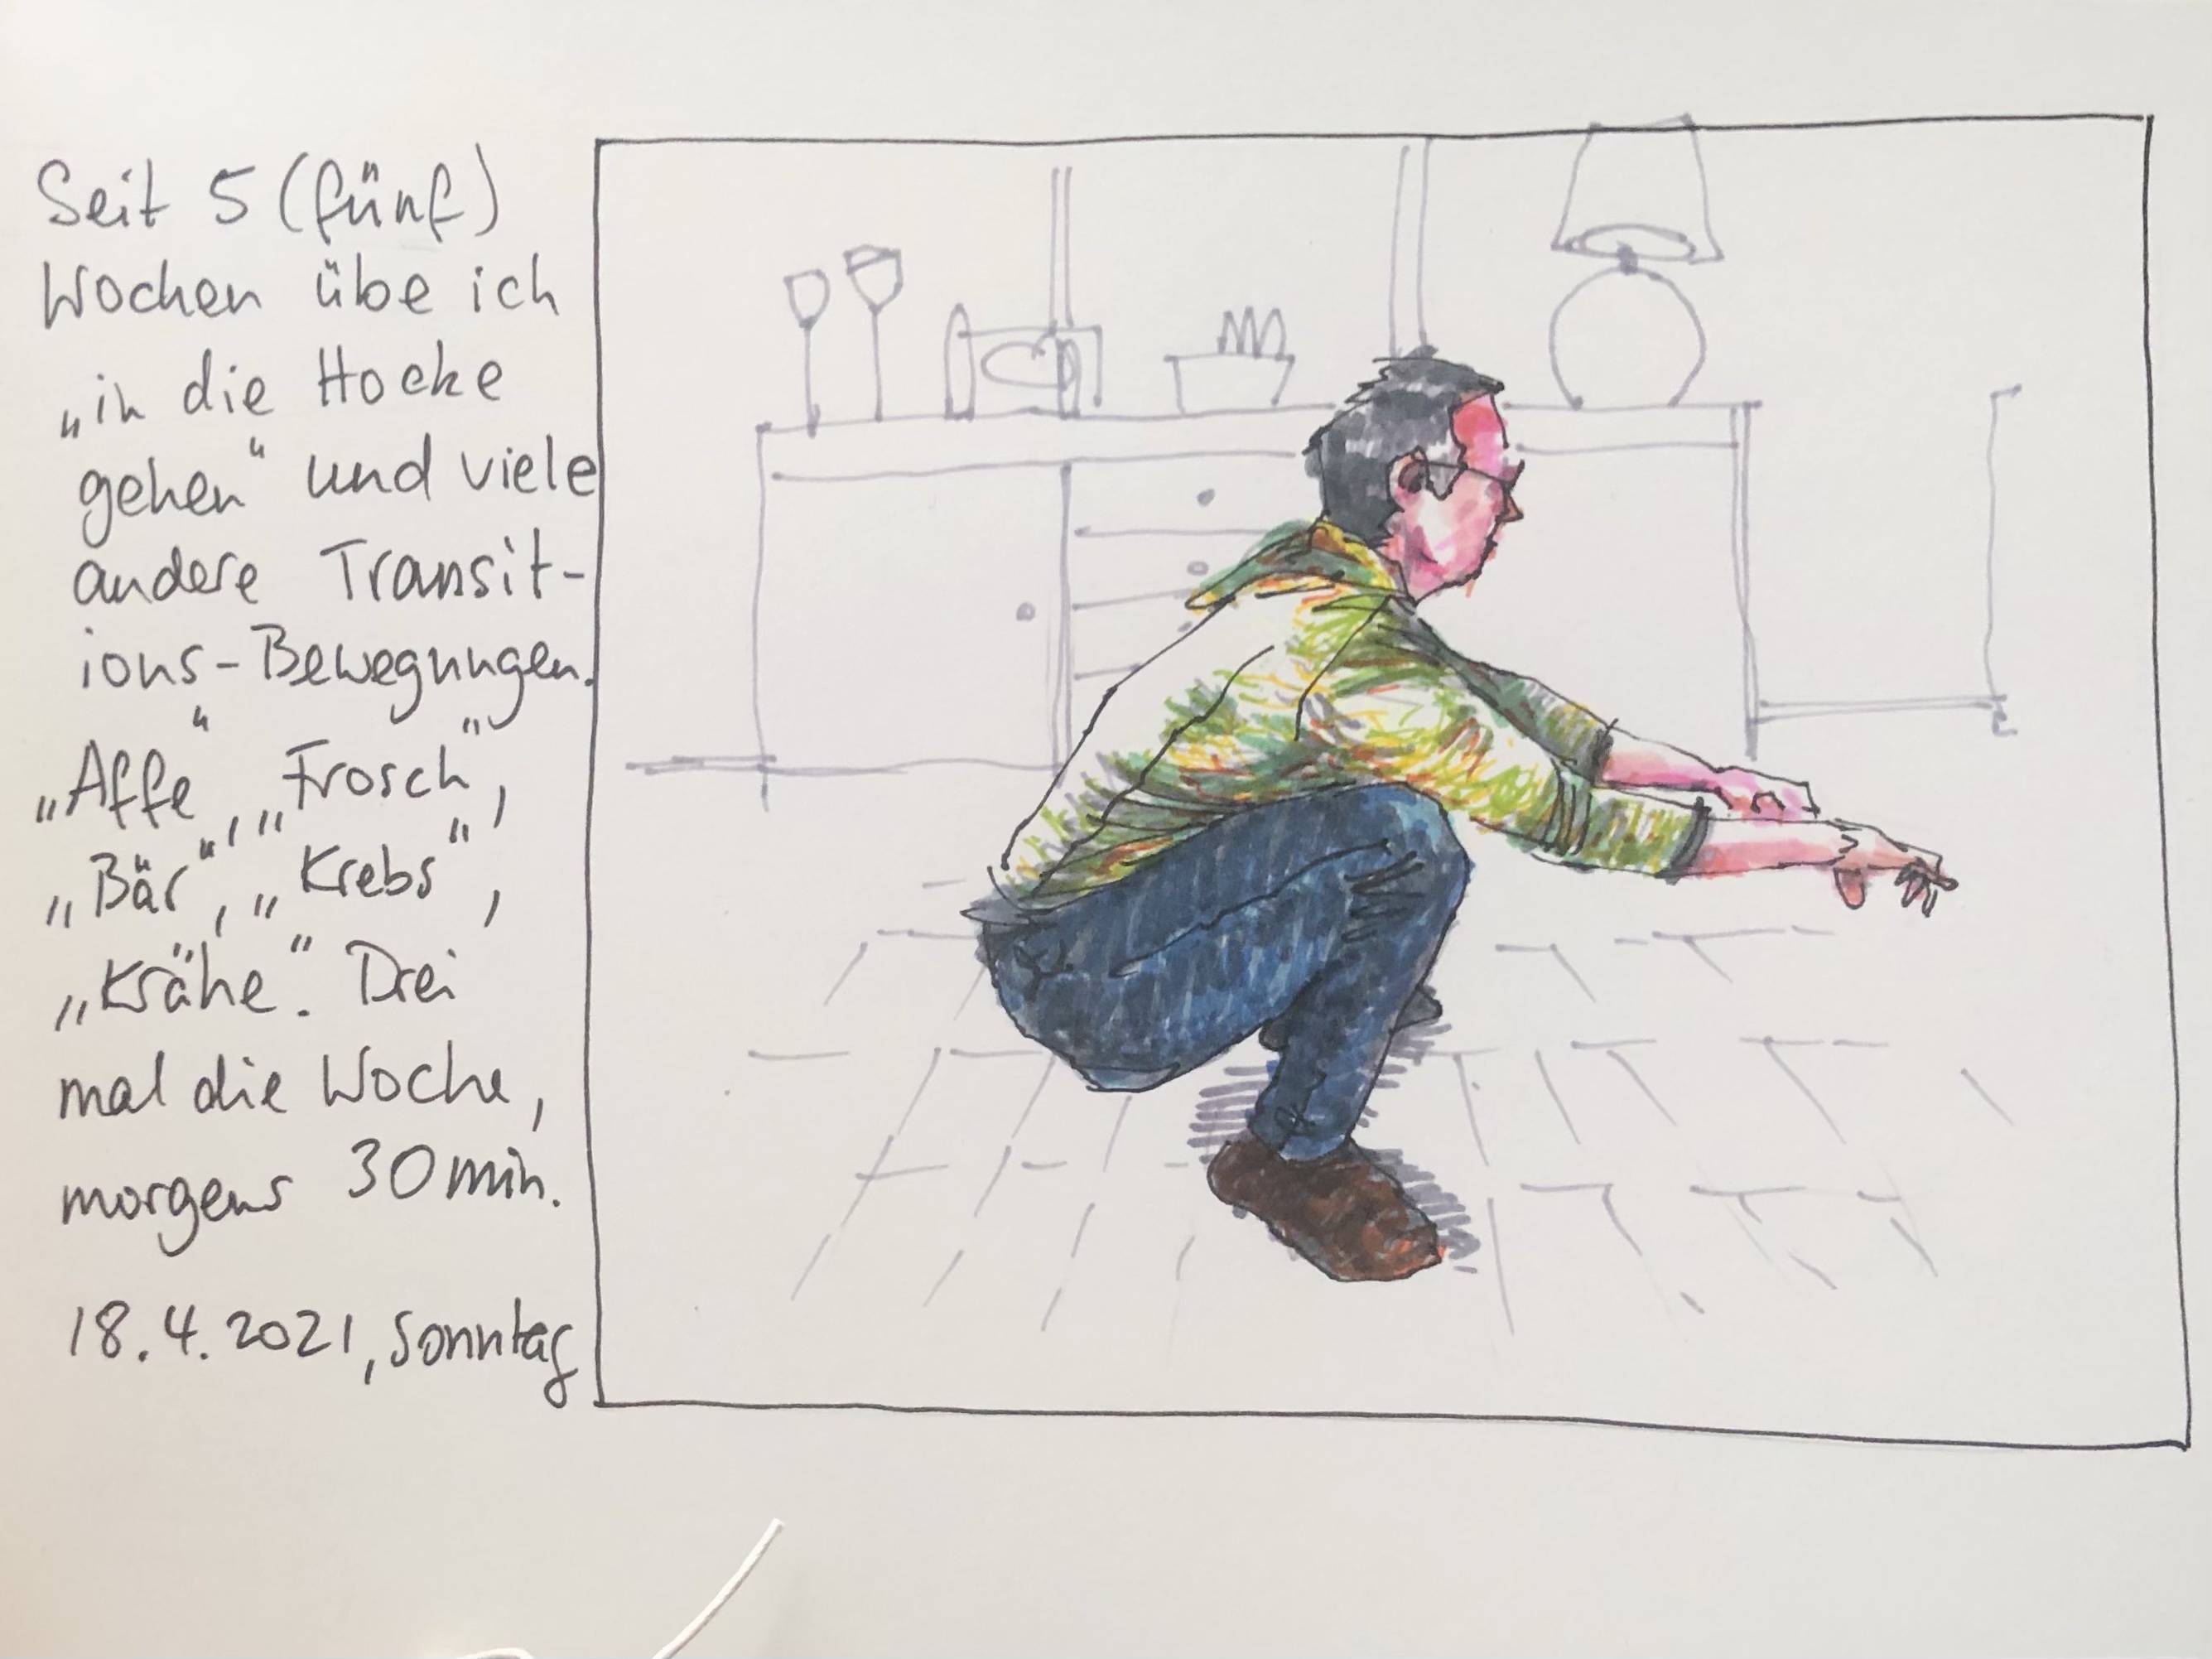 Seit 5 (fünf)
Wochen übe ich
„in die Hocke
gehen“ und viele
andere Transit-
ions-Bewegungen.
„Affe“, „Frosch“,
„Bär“, „Krebs“,
„Krähe“. Drei
mal die Woche,
morgens 30 min.
18.4.2021, Sonntag